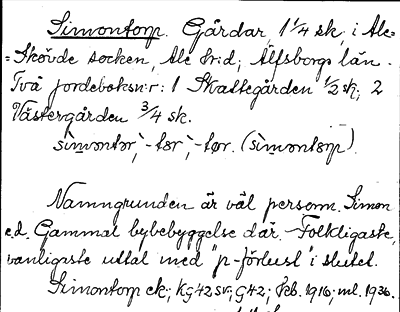 Simontorp. Gårdar 1 1/4 sk, i Ale-
=Skövde socken, Ale h:d; Älfsborgs län.
Två jordeboksn:r: 1 Skattegården 1/2 sk; 2
Västergården 3/4 sk.
sìmontør, -tør, -tør. (sìmontørp).
Namngrunden är väl personn. Simon
e.d. Gammal bybebyggelse där. - Folkligaste,
vanligaste uttal med "p-förlust" i slutet.
Simontorp ek; KG42SV; G42; feb. 1916; ml. 1936.